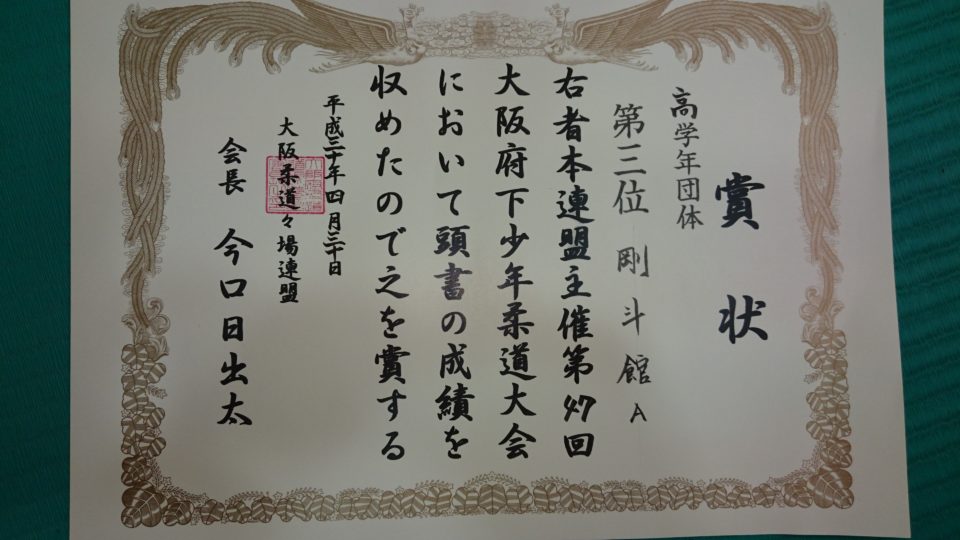 賞状
高学年団体
第三位 剛斗館A
右者本連盟主催第47回
大阪府下少年柔道大会
において頭書の成績を
収めたので之を賞する
平成三十年四月三十日
大阪柔道々場連盟
会長 今口日出太